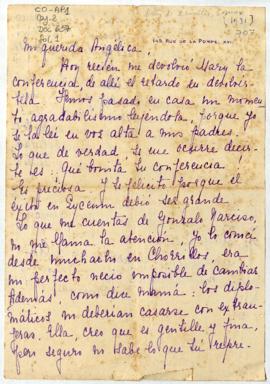 CO-AP1
Doc 257
Fol. 1
[1931]
207
RUE DE LA POMPE, XVI.
Mi querida Angélica,
Hoy recien me devolvió Mary la
conferencia, de alli el retardo en devolver-
tela. Hemos pasado en casa un momen-
to, agradabilísimo leyendola, porque yo
se la lei en voz alta a mis padres.
Lo que de verdad se me ocurre decir-
te es: Que bonita tu conferencia!
Es preciosa. Y te felicito porque el
exito en Lyceum debió ser grande
Lo que me cuentas de Gonzalo Narciso,
no me llama la atención, yo lo conocí
desde muchacho en Chorrillos, era
un perfecto necio imposible de cambiar
Además, como dice mamá: los diplo-
máticos no deberian casarse con extran-
jeras. Ella, creo que es gentille y fina,
pero seguro no sabe lo que Sú repre-